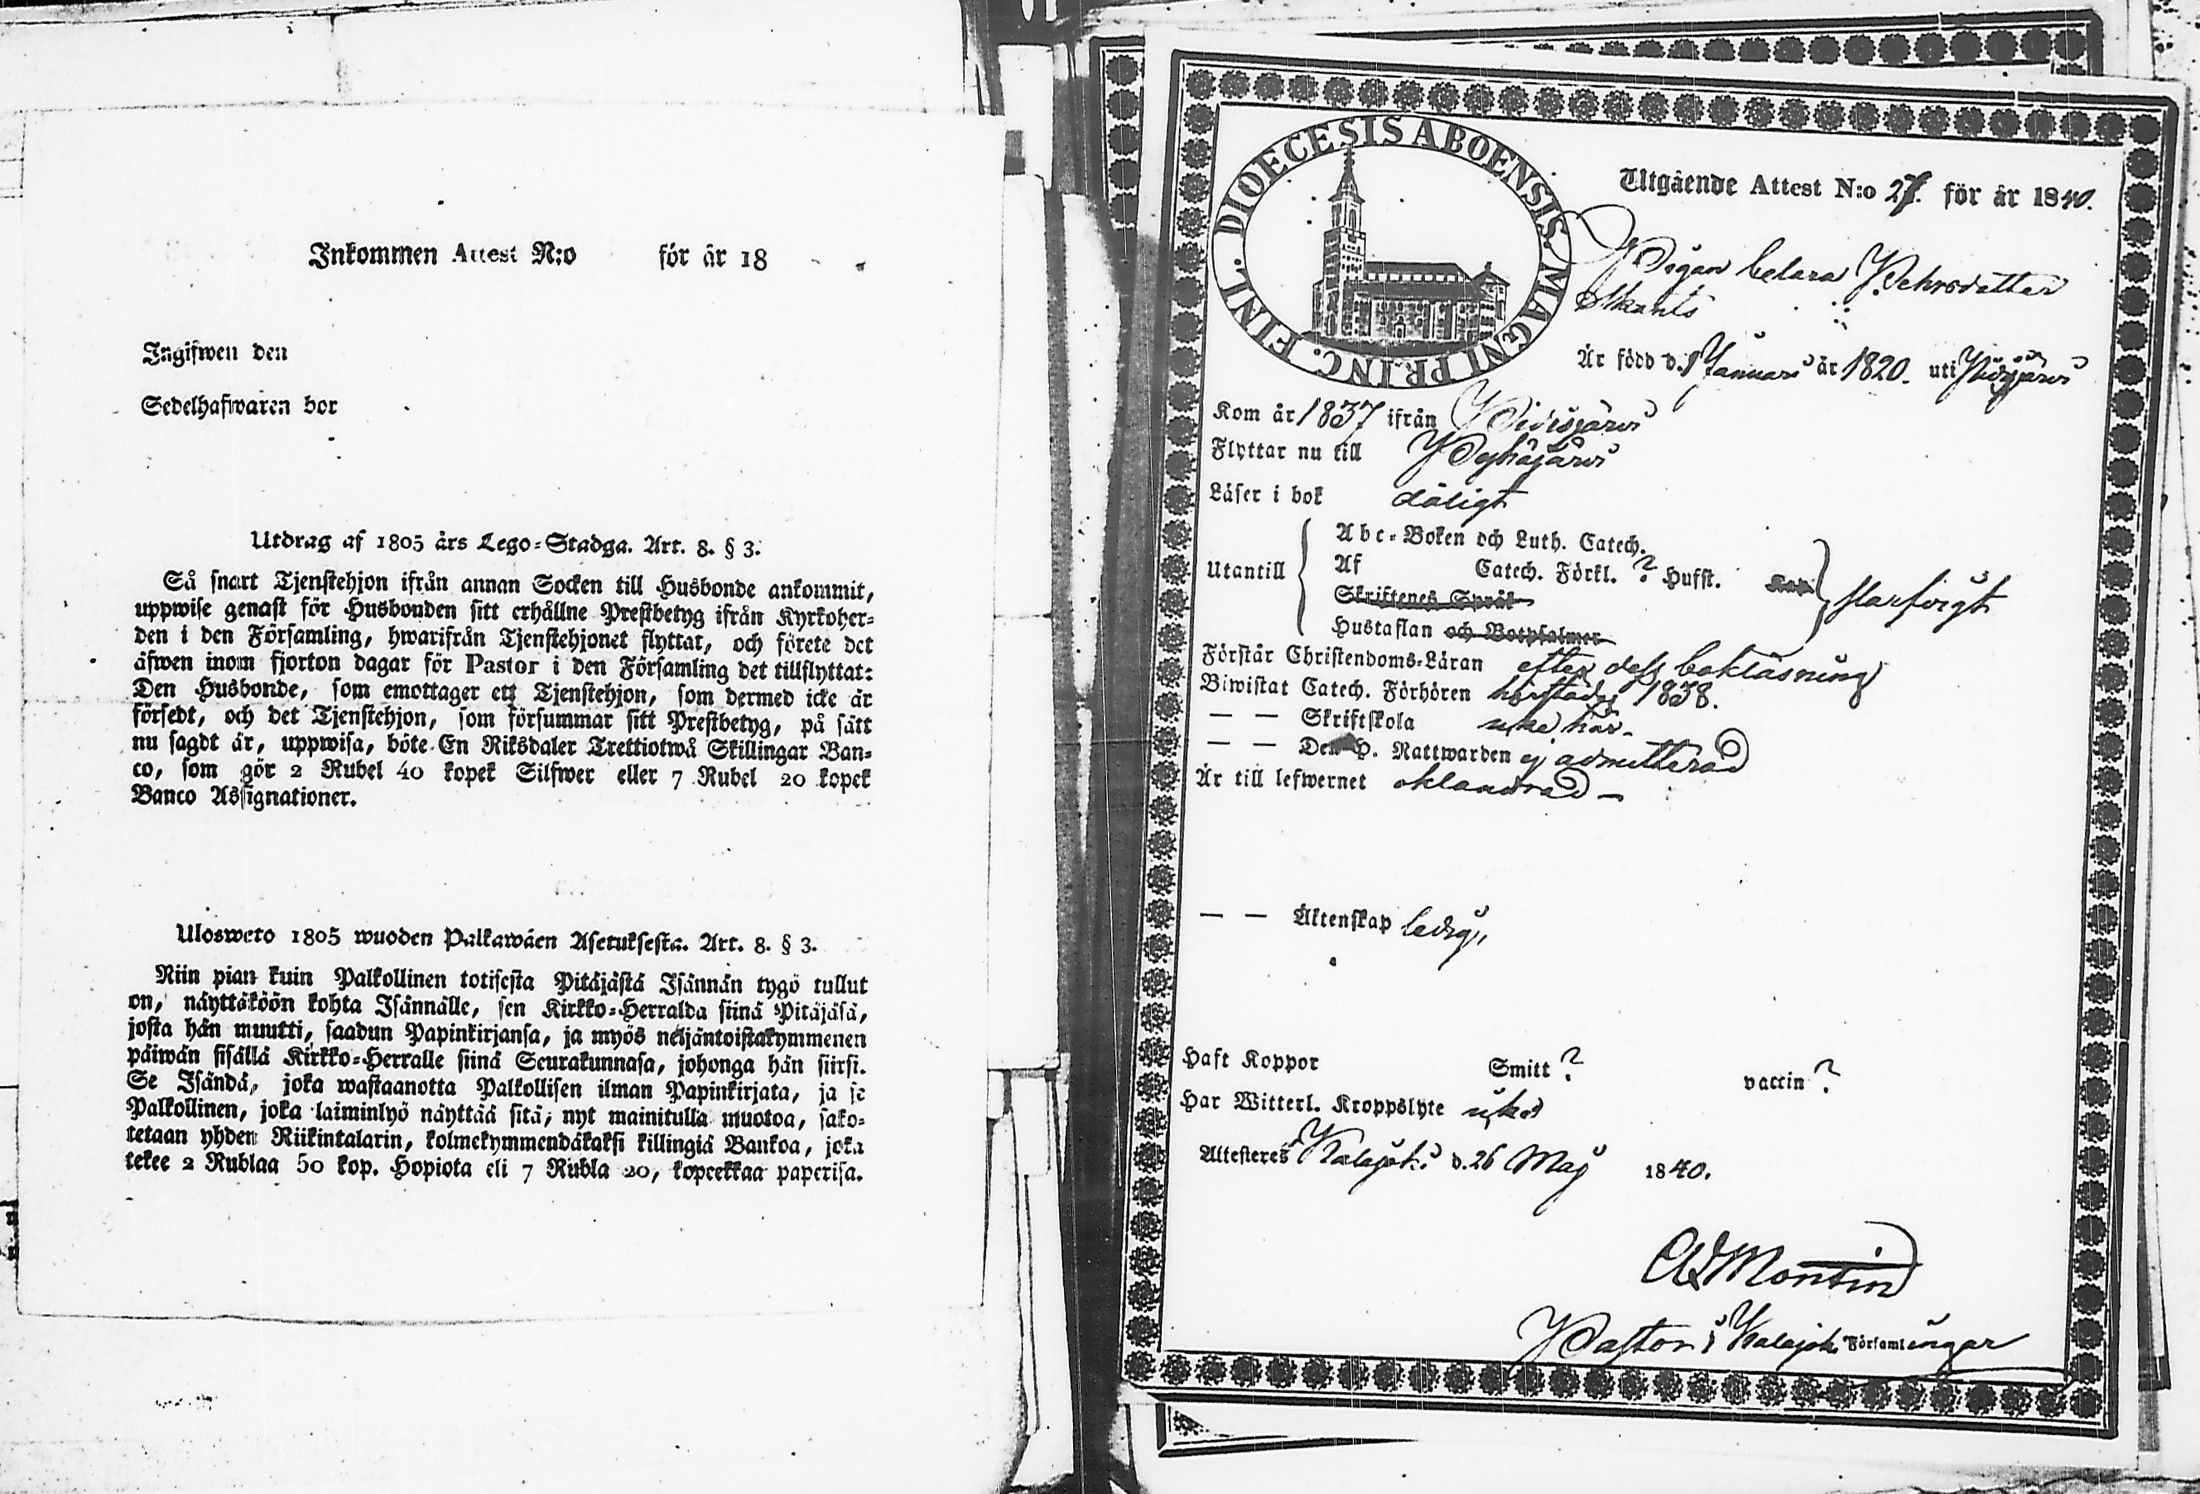 Inkommen Attest N:o för år 18
Ingifwen den
Sedelhafwaren bor
Utdrag af 1805 års Lego-Stadga. Art. 8. § 3.
Så snart Tjenstehjon ifrån annan Socken till Husbonde ankommit,
uppwise genast för Husbonden sitt erhållne Prestbetyg ifrån Kyrkoher-
den i den Församling, hwarifrån Tjenstehjonet flyttat, och förete det
äfwen inom fjorton dagar för Pastor i den Församling det tillflyttat:
Den Husbonde, som emottager ett Tjenstehjon, som dermed icke är
försedt, och det Tjenstehjon, som försummar sitt Prestbetyg, på sätt
nu sagdt är, uppwisa, böte En Riksdaler Trettiotwå Skillingar Ban-
co, som gör 2 Rubel 40 kopek Silfwer eller 7 Rubel 20 kopek
Banco Assignationer.
Ulosweto 1805 wuoden Palkawäen Asetuksesta. Art. 8. § 3.
Niin pian kuin Palkollinen totisesta Pitäjästä Isännän tygö tullut
on, näyttäköön kohta Isännälle, sen Kirkko-Herralda siinä Pitäjäsä,
josta hän muutti, saadun Papinkirjansa, ja myös neljäntoistakymmenen
päiwän sisällä Kirkko-Herralle siinä Seurakunnasa, johonga hän siirsi.
Se Isändä, joka wastaanotta Palkollisen ilman Papinkirjata, ja se
Palkollinen, joka laiminlyö näyttää sitä, nyt mainitulla muotoa, sako-
tetaan yhden Riikintalarin, kolmekymmendäkaksi killingiä Bankoa, joka
tekee 2 Rublaa 50 kop. Hopiota eli 7 Rubla 20, kopeekkaa paperisa.
DIOECESIS ABOENSIS MAGNI PRINC. FINL.
Utgående Attest N:o 27. för år 1840.
Pigan Pehrsdotter
Är född d. 1 Januari år 1820. uti
Kom år 1837 ifrån Pidisjärvi
Flyttar nu till Pyhäjärvi
Läser i bok dåligt
Abc-Boken och Luth. Catech.
Utantill Af Catech. Förkl. ? Husst. slarfvigt
Skriftenes Språk
Hustaflan och Botpsalmer
Förstår Christendoms-Läran efter dess bokläsning
Biwistat Catech. Förhören 1838.
— — Skriftskola icke här
— — Den H. Nattwarden ej admitterad
Är till lefwernet oklandrad —
— — Äktenskap ledig,
Haft Koppor Smitt ? vaccin ?
Har Witterl. Kroppslyte icke
Attesteres Kalajoki d. 26 Maj 1840.
Montin
Pastor i Kalajoki Församlingar